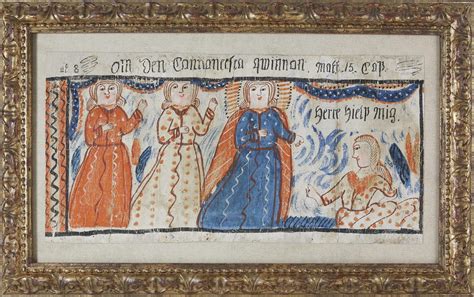 8 Om Den Cannanesca qwinnan. matt. 15. Cap.
Herre hielp mig.